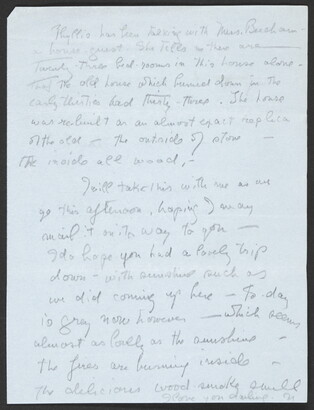 Phyllis has been talking with Mrs.
a house guest. She tells us there are
twenty-three bed-rooms in this house alone.
and the old house which burned down in the
early thirties had thirty-three. The house
was rebuilt in an almost exact replica
of the old — the outside of stone —
the inside all wood, —
I will take this with me as we
go this afternoon, hoping I may
mail it on its way to you —
I do hope you had a lovely trip
down — with sunshine such as
we did coming up here — To-day
is gray now however — which seems
almost as lovely as the sunshine —
the fires are burning inside —
the delicious wood smoke smell
I love you darling